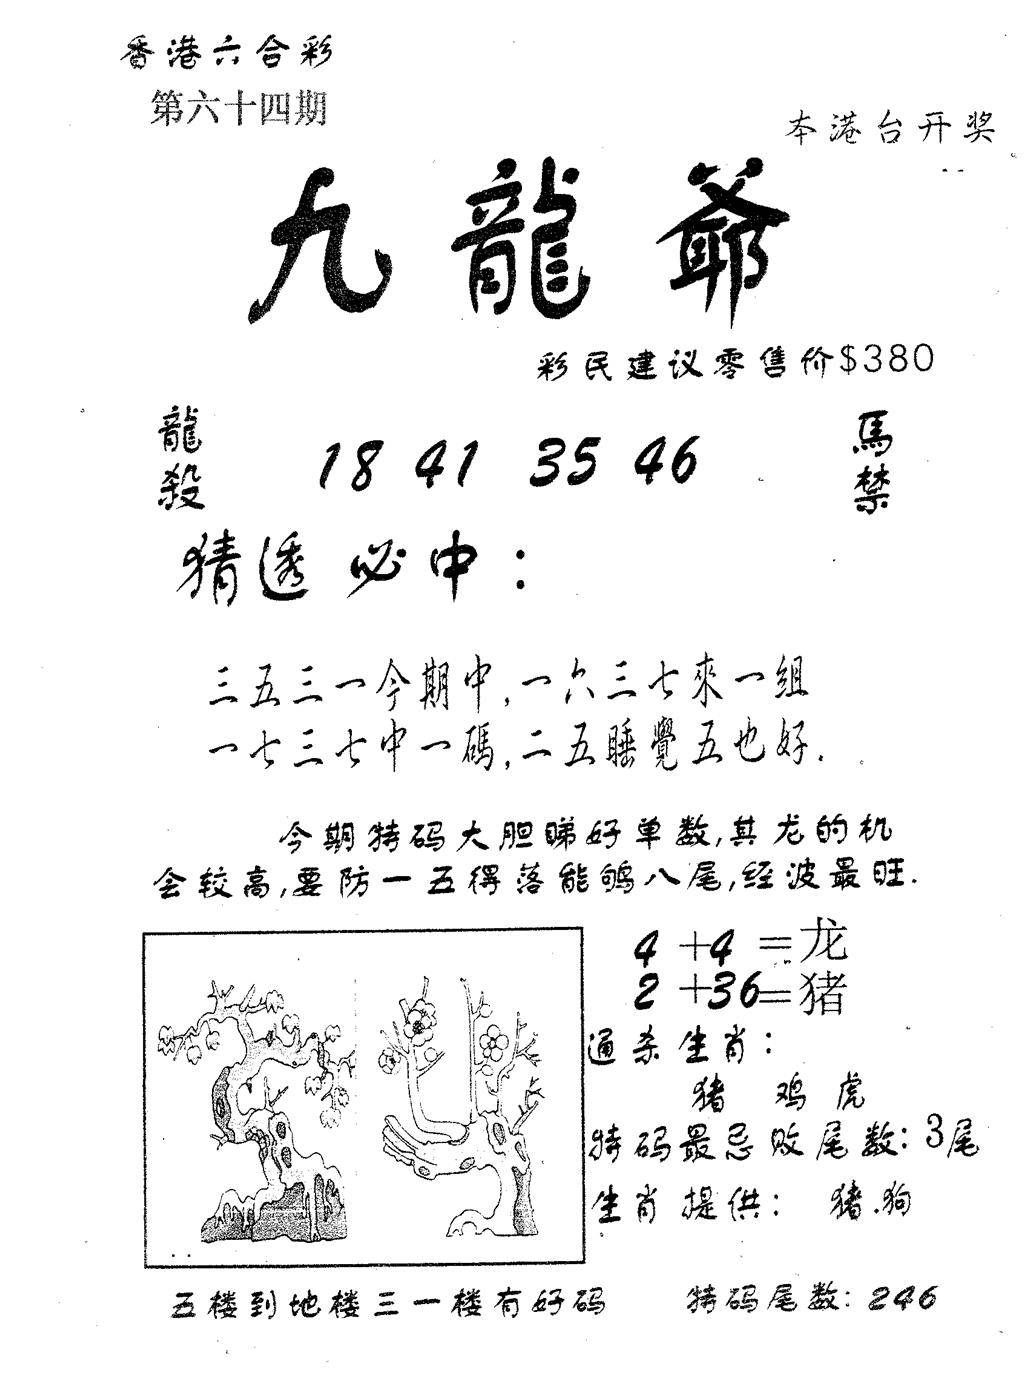 香港六合彩
第六十四期
本港台开奖
九龍爺
彩民建议零售价$380
龍殺 18 41 35 46 馬禁
猜透必中：
三五三一今期中,一六三七來一组
一七三七中一碼,二五睡覺五也好.
今期特码大胆睇好单数,其龙的机
会较高,要防一五得落能鸲八尾,经波最旺.
4+4=龙
2+36=猪
通杀生肖：
猪 鸡 虎
特码最忌败尾数：3尾
生肖提供： 猪.狗
五楼到地楼三一楼有好码 特码尾数：246